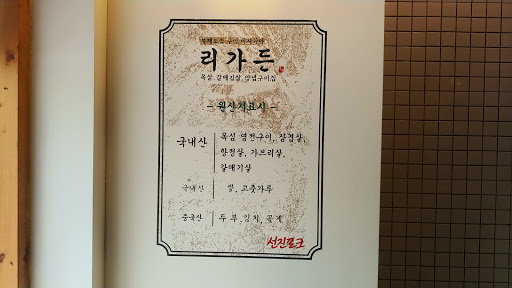 리가든
목살, 갈매진살, 양념구이집
- 원산지표시 -
국내산 목심 염전구이, 삼겹살,
항정살, 가브리살,
갈매기살
국내산 쌀, 고춧가루
중국산 두부, 김치, 꽃게
선진포크